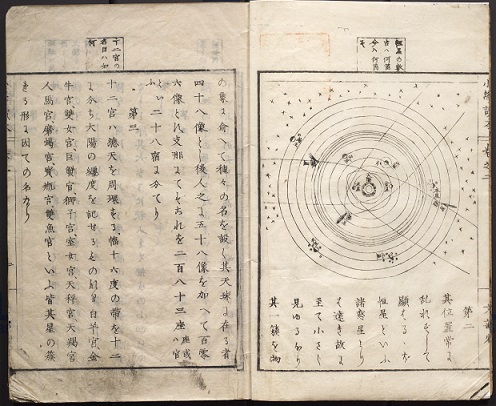 第二
其位置常に
乱れずして
顕るゝを
恒星といふ
諸惑星より
も遠き故に
至て小さく
見ゆるなり
其一簇を物
十二宮の
名目ハ如
何
の象に命へて種々の名を設し其天球に在る者
四十八像とし後人之に五十八像を加へて百零
六像とす支那にてもこれを二百八十三座
とし二十八宿に分てり
第三
十二宮ハ渾天を周環する幅十六度の帯を十二
に分ち太陽の纏度を記せるもの則白羊宮金
牛宮雙女宮巨蟹宮獅子宮室女宮天秤宮天蝎宮
人馬宮磨羯宮寶瓶宮雙魚宮といふ皆其星の簇
まる形に因ての名なり